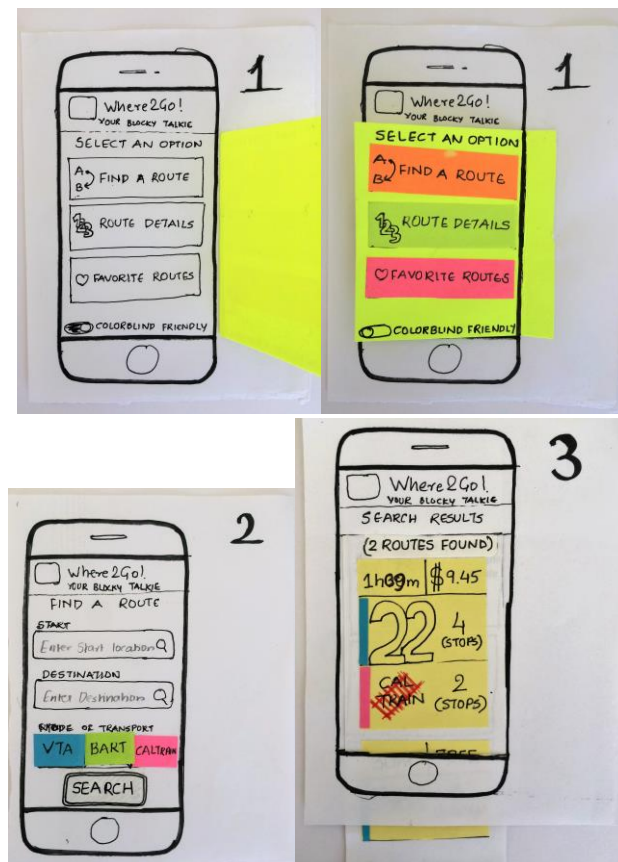 1
Where2Go!
YOUR BLOCKY TALKIE
SELECT AN OPTION
A
B
FIND A ROUTE
123
ROUTE DETAILS
FAVORITE ROUTES
COLORBLIND FRIENDLY
1
Where2Go!
YOUR BLOCKY TALKIE
SELECT AN OPTION
A
B
FIND A ROUTE
123
ROUTE DETAILS
FAVORITE ROUTES
COLORBLIND FRIENDLY
2
Where2Go!
YOUR BLOCKY TALKIE
FIND A ROUTE
START
Enter Start location
DESTINATION
Enter Destination
MODE OF TRANSPORT
VTA BART CALTRAIN
SEARCH
3
Where2Go!
YOUR BLOCKY TALKIE
SEARCH RESULTS
(2 ROUTES FOUND)
1h09m $9.45
22 4
(STOPS)
CAL
TRAIN
2
(STOPS)